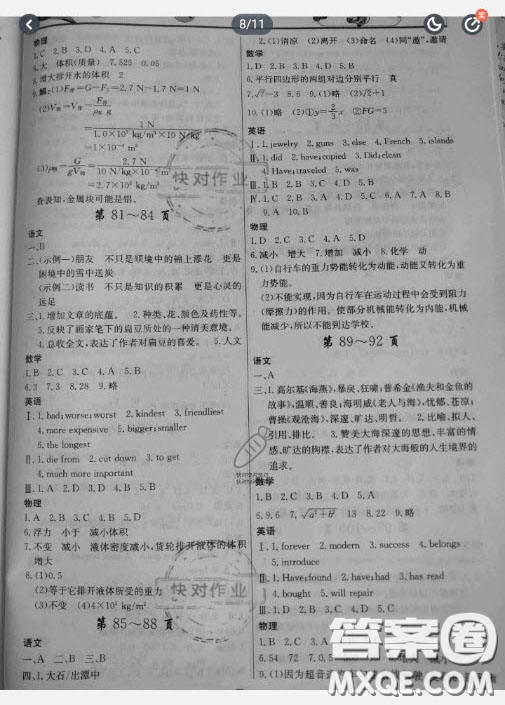 8/11
物理
1.C 2.B 3.D 4.A 5.C
6.大 体积(质量) 7.525 0.05
8.增大排开水的体积 2
9.解:(1)F浮=G-F1=2.7 N-1.7 N=1 N
(2)V物=V排=F浮/ρ水g
=1 N/1.0×10³ kg/m³×10 N/kg
=1×10⁻⁴ m³
(3)ρ物=G/gV物=2.7 N/10 N/kg×10⁻⁴ m³
=2.7×10³ kg/m³
查表知,金属块可能是铝。
第81~84页
语文
一、B
二、(示例一)朋友 不只是顺境中的锦上添花 更是
困境中的雪中送炭
(示例二)读书 不只是知识的积累 更是心灵的
远足
三、1.增加文章的底蕴。 2.种类、花、颜色及药性等。
3.反映了画家笔下的扁豆所处的一种清美意境。
4.总收全文,表达了作者对扁豆的喜爱。 5.人文
数学
1.B 2.C 3.C 4.A 5.B
6.3 7.3 8.28 9.略
英语
Ⅰ.1.bad;worse;worst 2.kindest 3.friendliest
4.more expensive 5.bigger;smaller
6.the longest
Ⅱ.1.die from 2.cut down 3.to get
4.much more important
Ⅲ.1.D 2.A 3.D 4.A 5.B
物理
1.A 2.B 3.D 4.B 5.B
6.浮力 小于 减小体积
7.不变 减小 液体密度减小,货轮排开液体的体积
增大
8.(1)0.5
(2)等于它排开液体所受的重力
(3)不变 (4)4×10² kg/m³
第85~88页
语文
一、A 二、B 三、B
四、1.大石/出潭中
2.(1)清凉 (2)离开 (3)命名 (4)同“邀”,邀请
数学
1.D 2.B 3.B 4.B 5.B
6.平行四边形的两组对边分别平行 真
7.√7-3 8.6 9.(1)略 (2)√2+1
10.(1)略 (2)①y=2/3x ②FG=5
英语
Ⅰ.1.jewelry 2.guns 3.else 4.French 5.islands
Ⅱ.1.did 2.have;copied 3.Did;clean
4.Have;traveled 5.was
Ⅲ.1.B 2.A 3.C 4.A 5.C 6.B 7.A 8.C
9.A 10.A
物理
1.D 2.C 3.A 4.D 5.C
6.减小 增大 7.增加 减小 8.化学 动
9.(1)自行车的重力势能转化为动能,动能又转化为重
力势能。
(2)不能实现,因为自行车在运动过程中会受到阻力
(摩擦力)的作用。使部分机械能转化为内能,机械
能减小,所以不能到达学校。
第89~92页
语文
一、A 二、C
三、1.高尔基《海燕》,暴戾、狂啸;普希金《渔夫和金鱼的
故事》,温顺、善良;海明威《老人与海》,忧郁、苍凉;
曹操《观沧海》,深邃、旷达、明哲。 2.比喻、拟人、
引用、排比。 3.赞美大海深邃的思想、丰富的情
感、旷达的胸襟,表达了作者对大海般的人生境界的
追求。
数学
1.B 2.B 3.C 4.D 5.A
6.9,6 7.√a²+b² 13 8.22 9.略
英语
Ⅰ.1.forever 2.modern 3.success 4.belongs
5.introduce
Ⅱ.1.Have;found 2.have;had 3.has read
4.bought 5.will repair
Ⅲ.1.D 2.B 3.D 4.C 5.B
物理
6.54 72
9.(1)因为超音速
快对作业
快对作业
答案圈
MXQE.COM